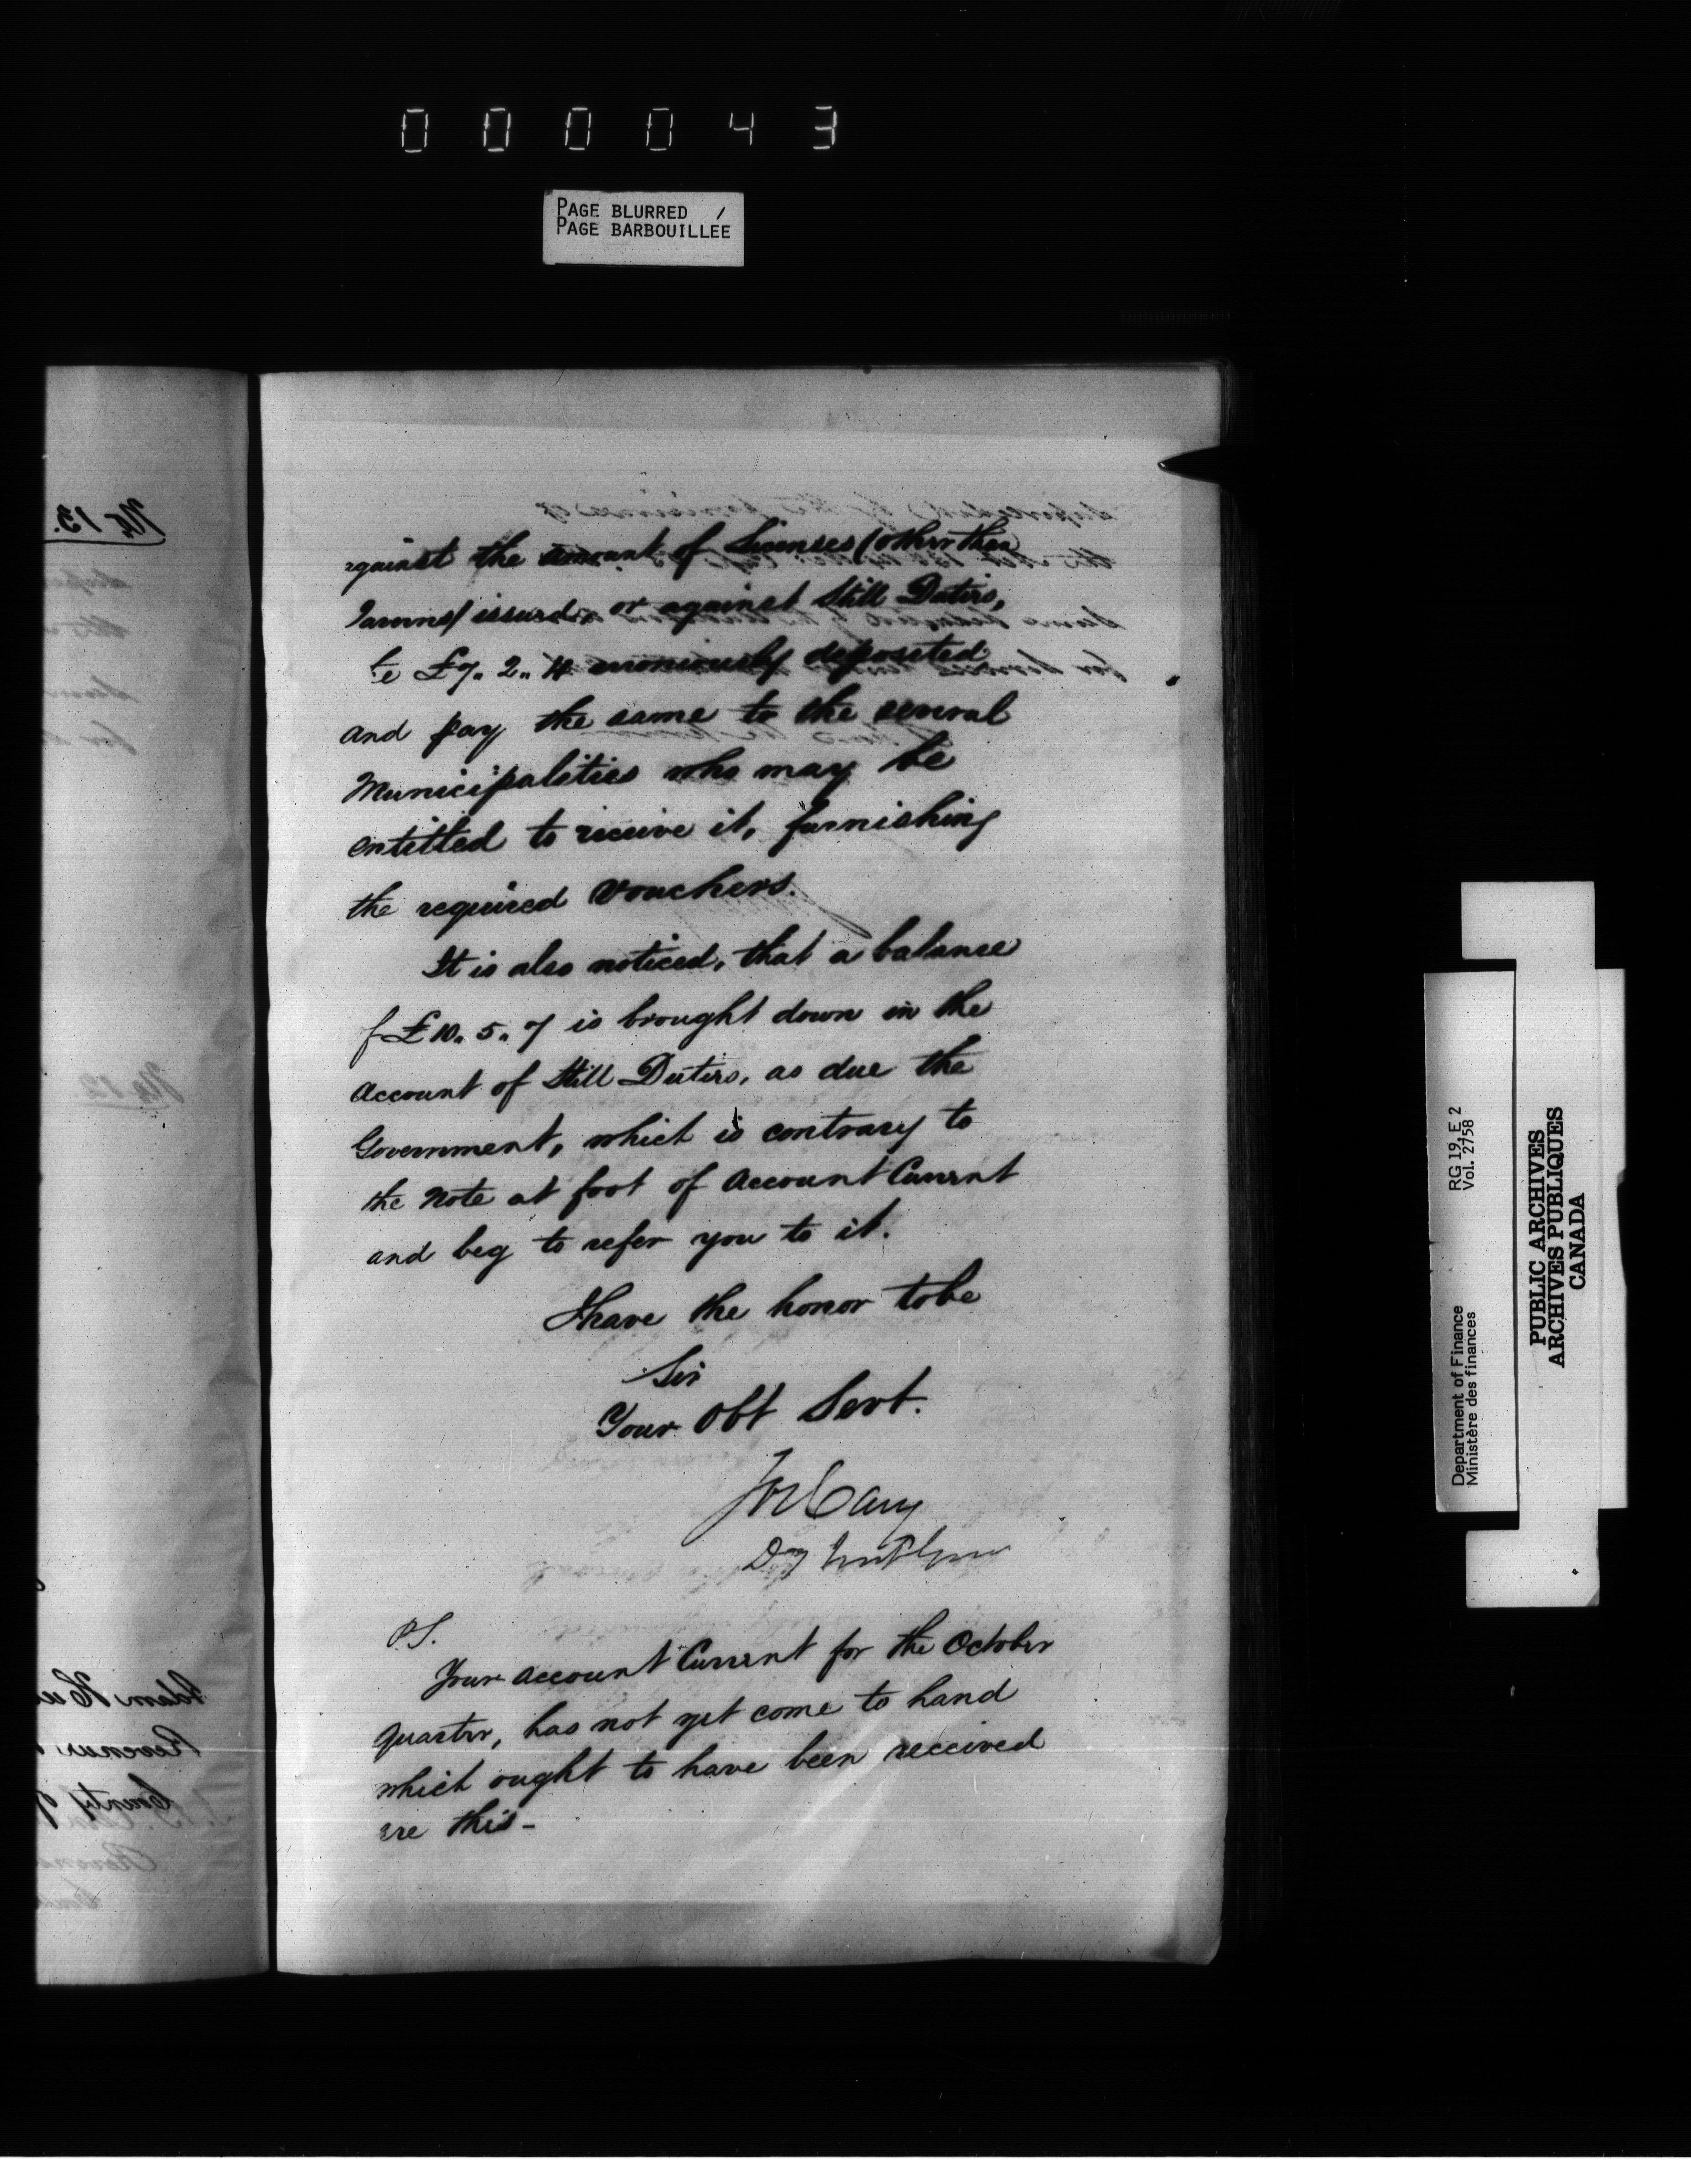 000043
PAGE BLURRED /
PAGE BARBOUILLÉE
No 13.
against the amount of Licenses (other than
Taverns) issued, or against Still Duties,
te £7. 2. 4 erroneously deposited
and pay the same to the several
Municipalities who may be
entitled to receive it, furnishing
the required vouchers.
It is also noticed, that a balance
of £10. 5. 7 is brought down in the
account of Still Duties, as due the
Government, which is contrary to
the note at foot of Account Current
and beg to refer you to it.
I have the honor to be
Sir
Your Obt Servt.
Jos Cary
Dy
P.S.
Your account Current for the October
quarter, has not yet come to hand
which ought to have been received
ere this -
No 12.
County of
RG 19, E 2
Vol. 2758
Department of Finance
Ministère des finances
PUBLIC ARCHIVES
ARCHIVES PUBLIQUES
CANADA